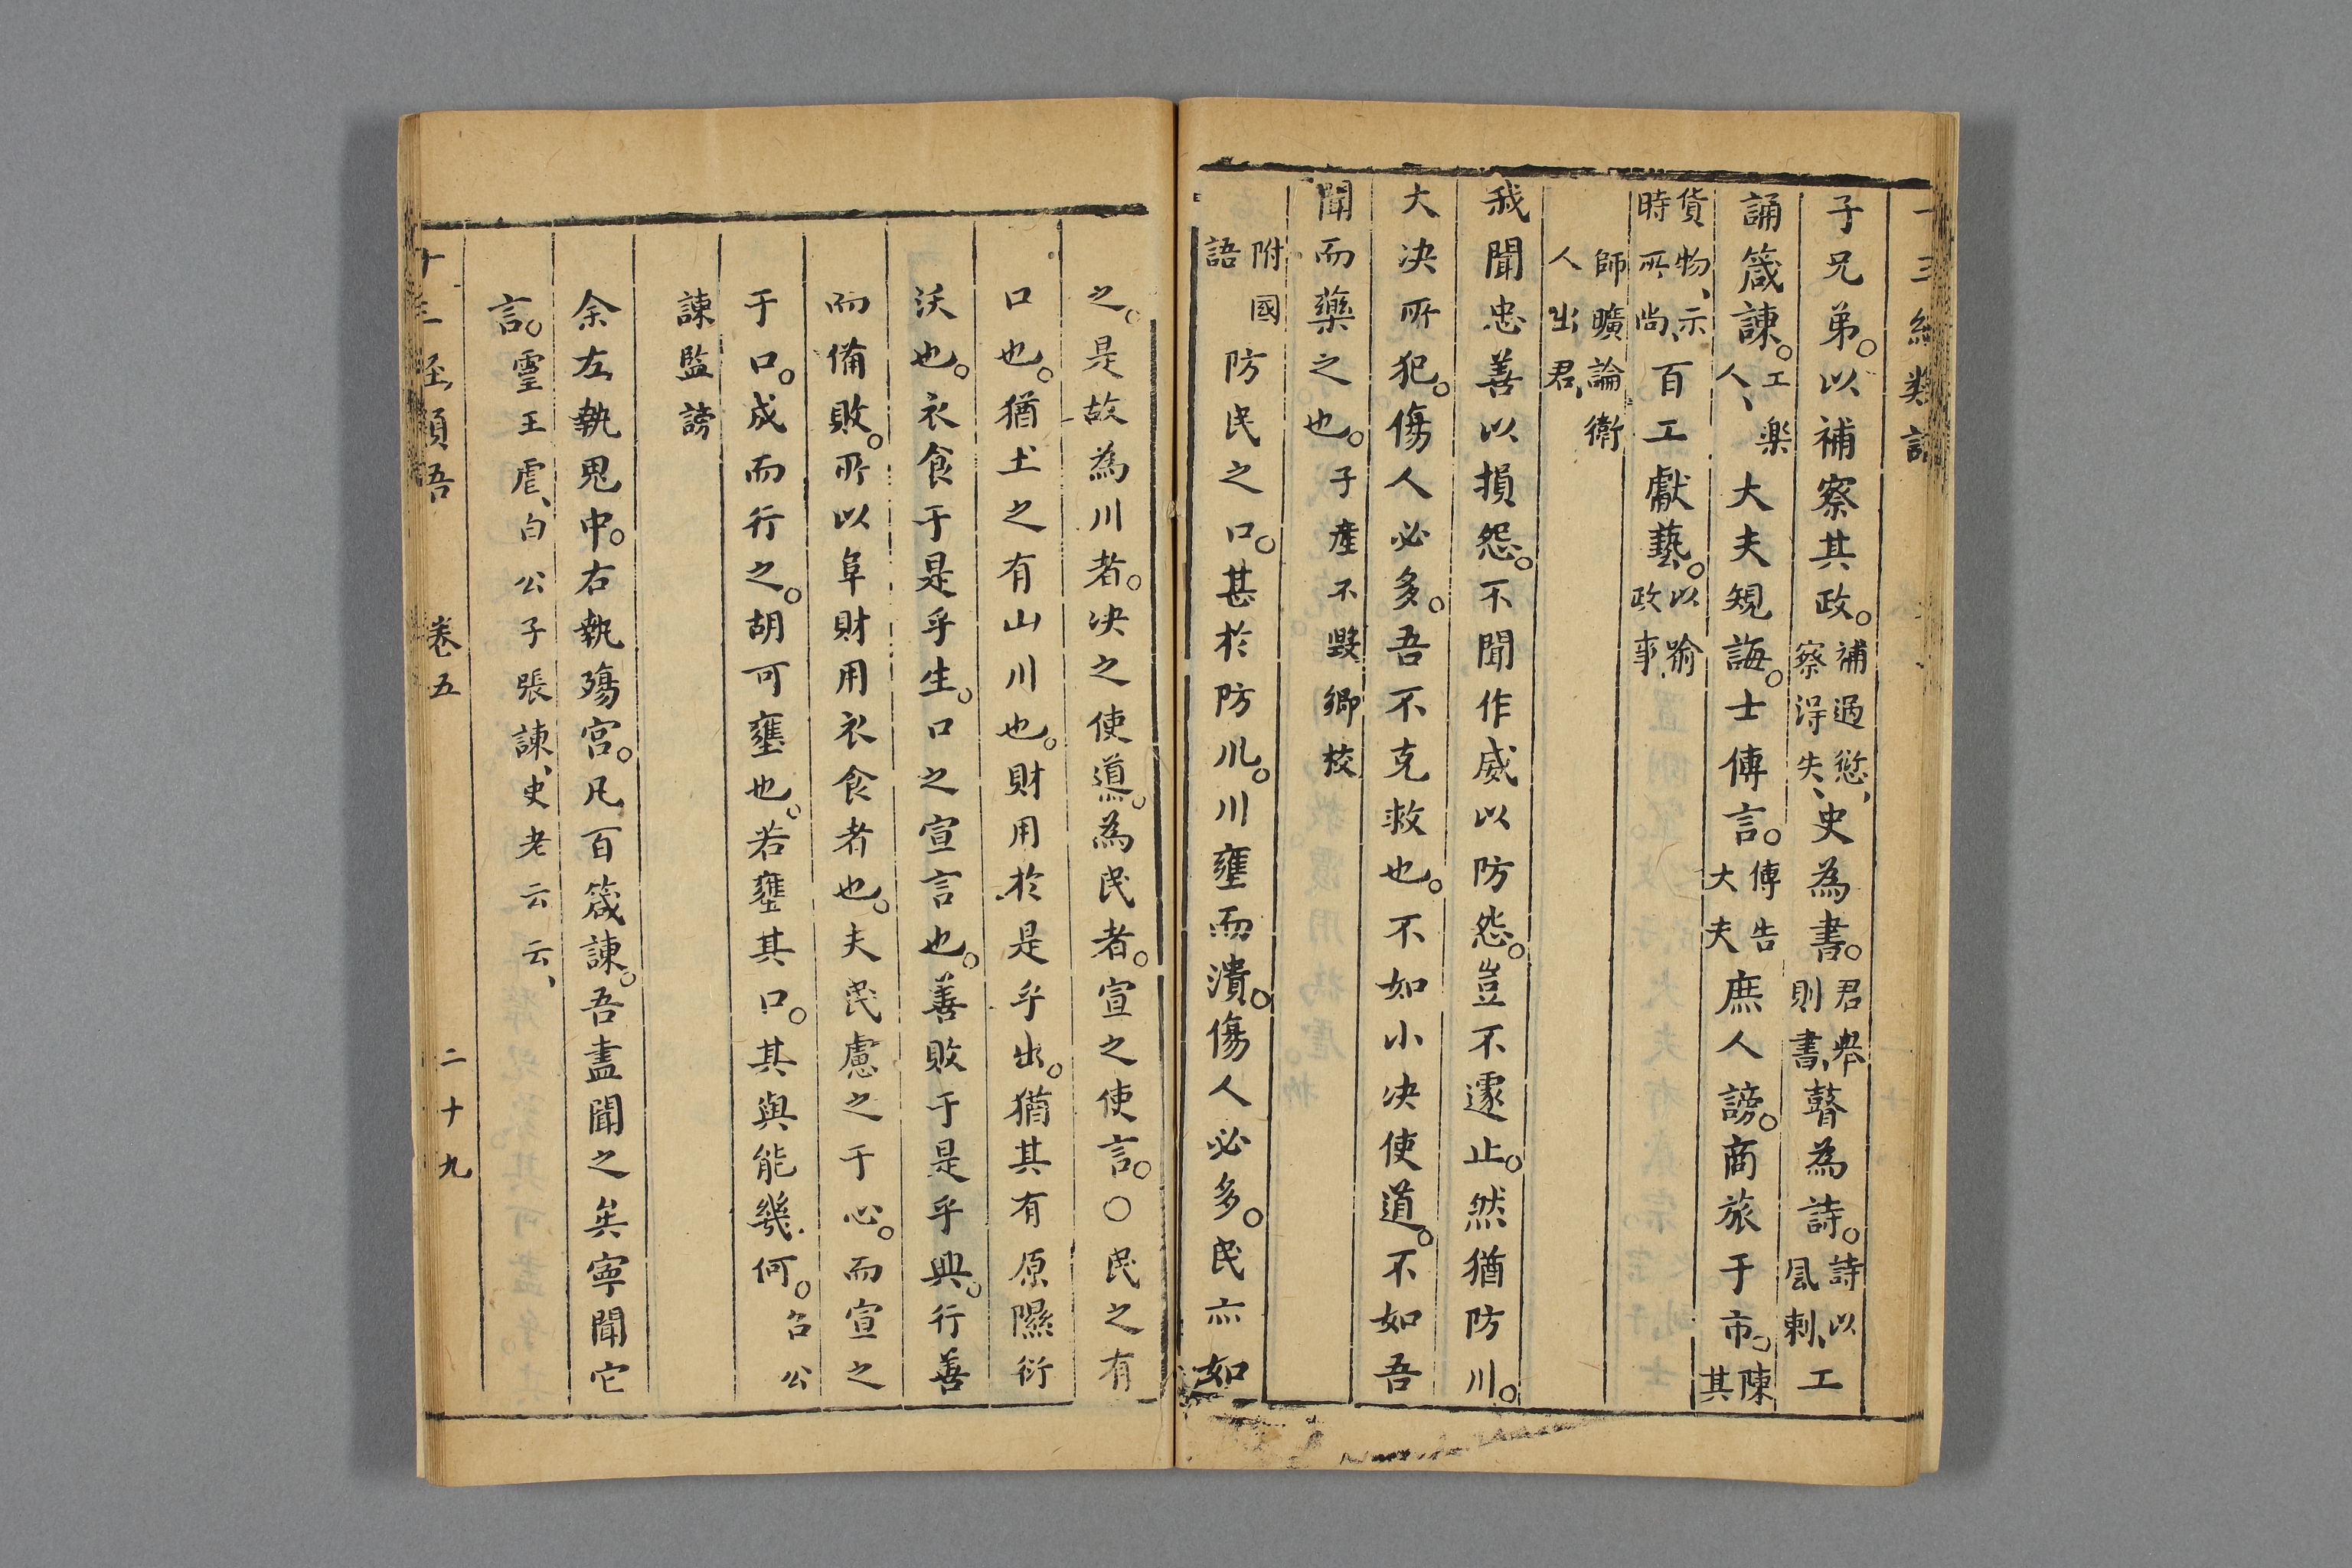 子兄弟。以補察其政。補過愆、察得失、史為書。君舉則書、瞽為詩。詩以風刺、工
誦箴諫。工樂人、大夫規誨。士傳言。傳告大夫庶人謗。商旅于市。陳其
貨物、示時所尚、百工獻藝。以喻政事、
師曠論衛人出君、
我聞忠善以損怨。不聞作威以防怨。豈不遽止。然猶防川。
大决所犯。傷人必多。吾不克救也。不如小决使道。不如吾
聞而藥之也。子產不毀鄉校
附國語防民之口。甚於防川。川壅而潰。傷人必多。民亦如
之。是故為川者。决之使導。為民者。宣之使言。○民之有
口也。猶土之有山川也。財用於是乎出。猶其有原隰衍
沃也。衣食于是乎生。口之宣言也。善敗于是乎興。行善
而備敗。所以阜財用衣食者也。夫民慮之于心。而宣之
于口。成而行之。胡可壅也。若壅其口。其與能幾何。召公
諫監謗
余左執鬼中。右執殤宮。凡百箴諫。吾盡聞之矣寧聞它
言。靈王虐、白公子張諫、史老云云、
卷五
二十九